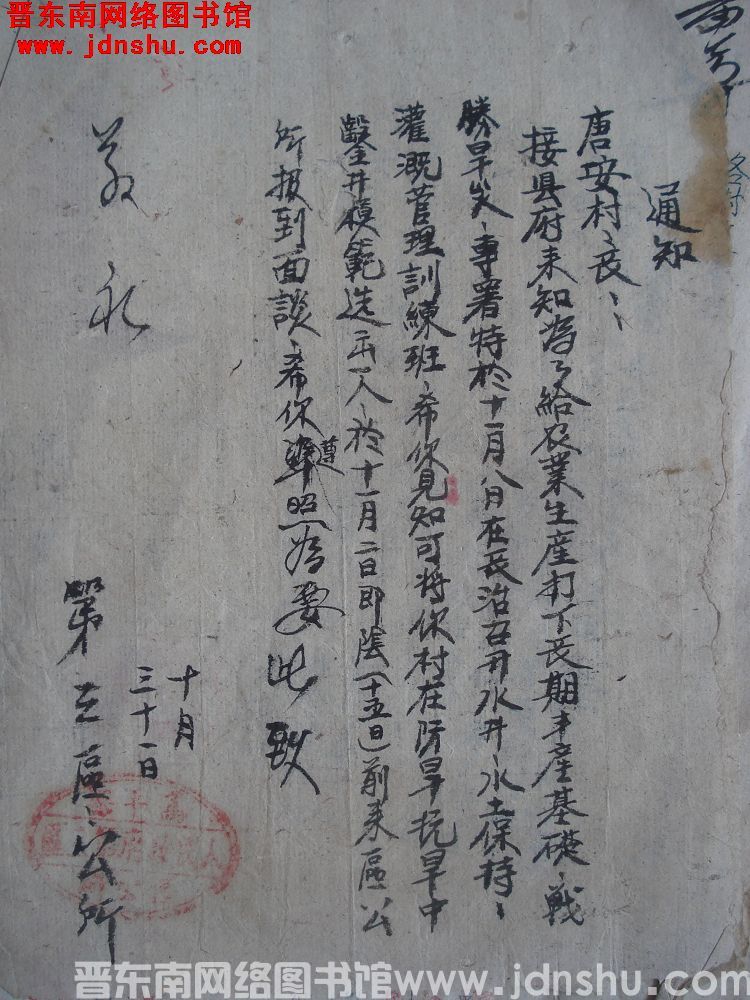 晋东南网络图书馆
www.jdnshu.com
通知
唐安村、长、
接县府来知为了给农业生産打下長期丰産基礎、戦
勝旱灾、専署特於十一月八日在長治召开水井、水土保持、
灌溉管理訓練班、希你見知可将你村在防旱抗旱中
鑿井模範选出一人、於十一月二日即陰(十五日)前来區公
所报到面談、希你遵照為要此致
敬礼
十月
三十一日
第三區、公所
晋东南网络图书馆www.jdnshu.com